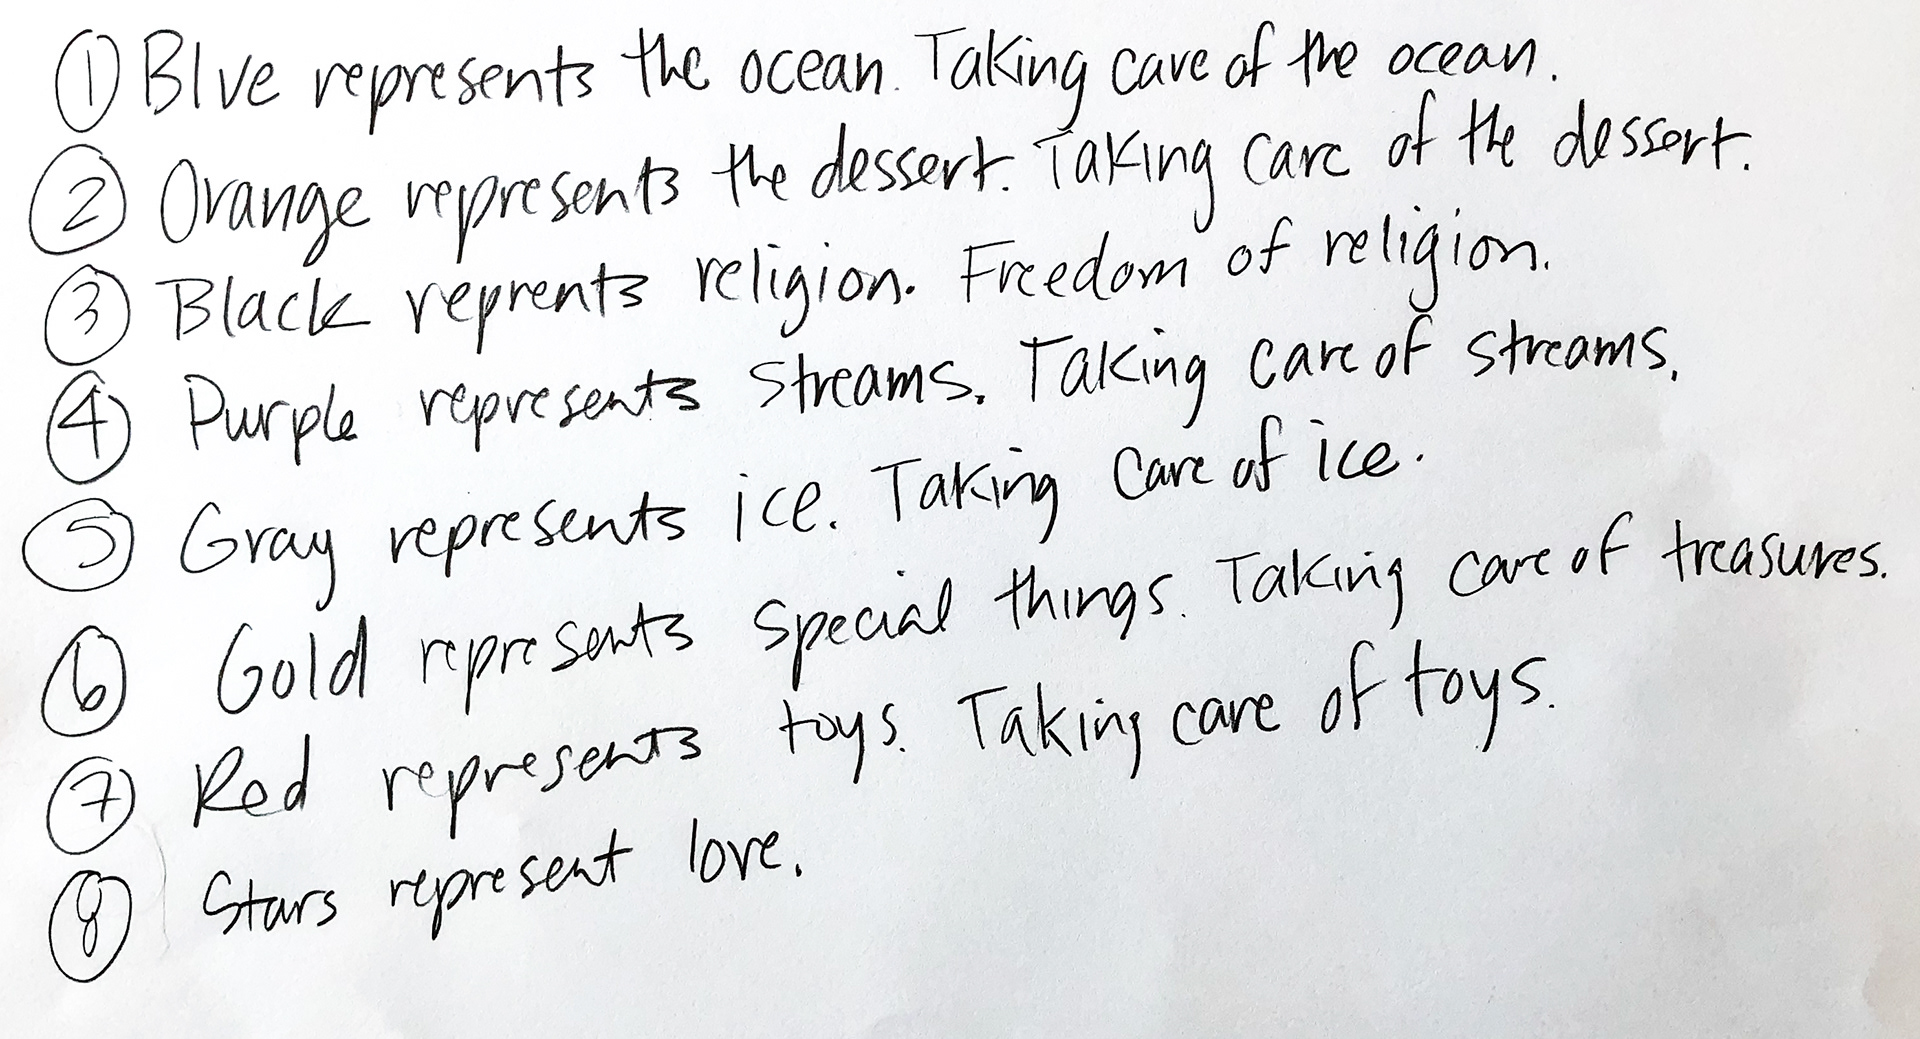 ① Blue represents the ocean. Taking care of the ocean.
② Orange represents the dessert. Taking care of the dessert.
③ Black reprents religion. Freedom of religion.
④ Purple represents streams. Taking care of streams.
⑤ Gray represents ice. Taking care of ice.
⑥ Gold represents special things. Taking care of treasures.
⑦ Red represents toys. Taking care of toys.
⑧ Stars represent love.